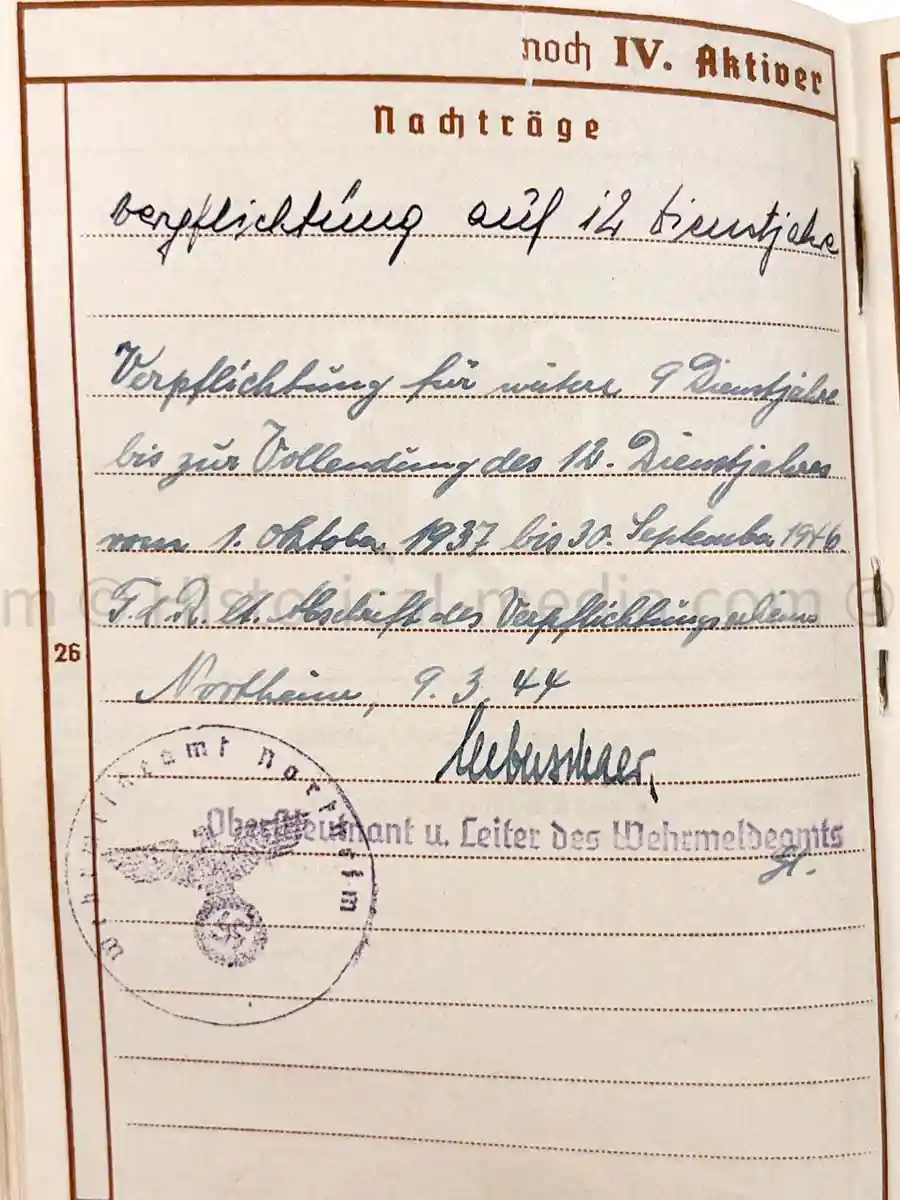 noch IV. Aktiver
Nachträge
verpflichtung auf 12 Dienstjahre
Verpflichtung für weitere 9 Dienstjahre
bis zur Vollendung des 12. Dienstjahres
vom 1. Oktober 1937 bis 30. September 1946
F.d.R. lt. Abschrift des Verpflichtungsscheins
26
Northeim, 9.3.44
Oberstleutnant u. Leiter des Wehrmeldeamts
Wehrmeldeamt Northeim
m © Historical-media.com ©